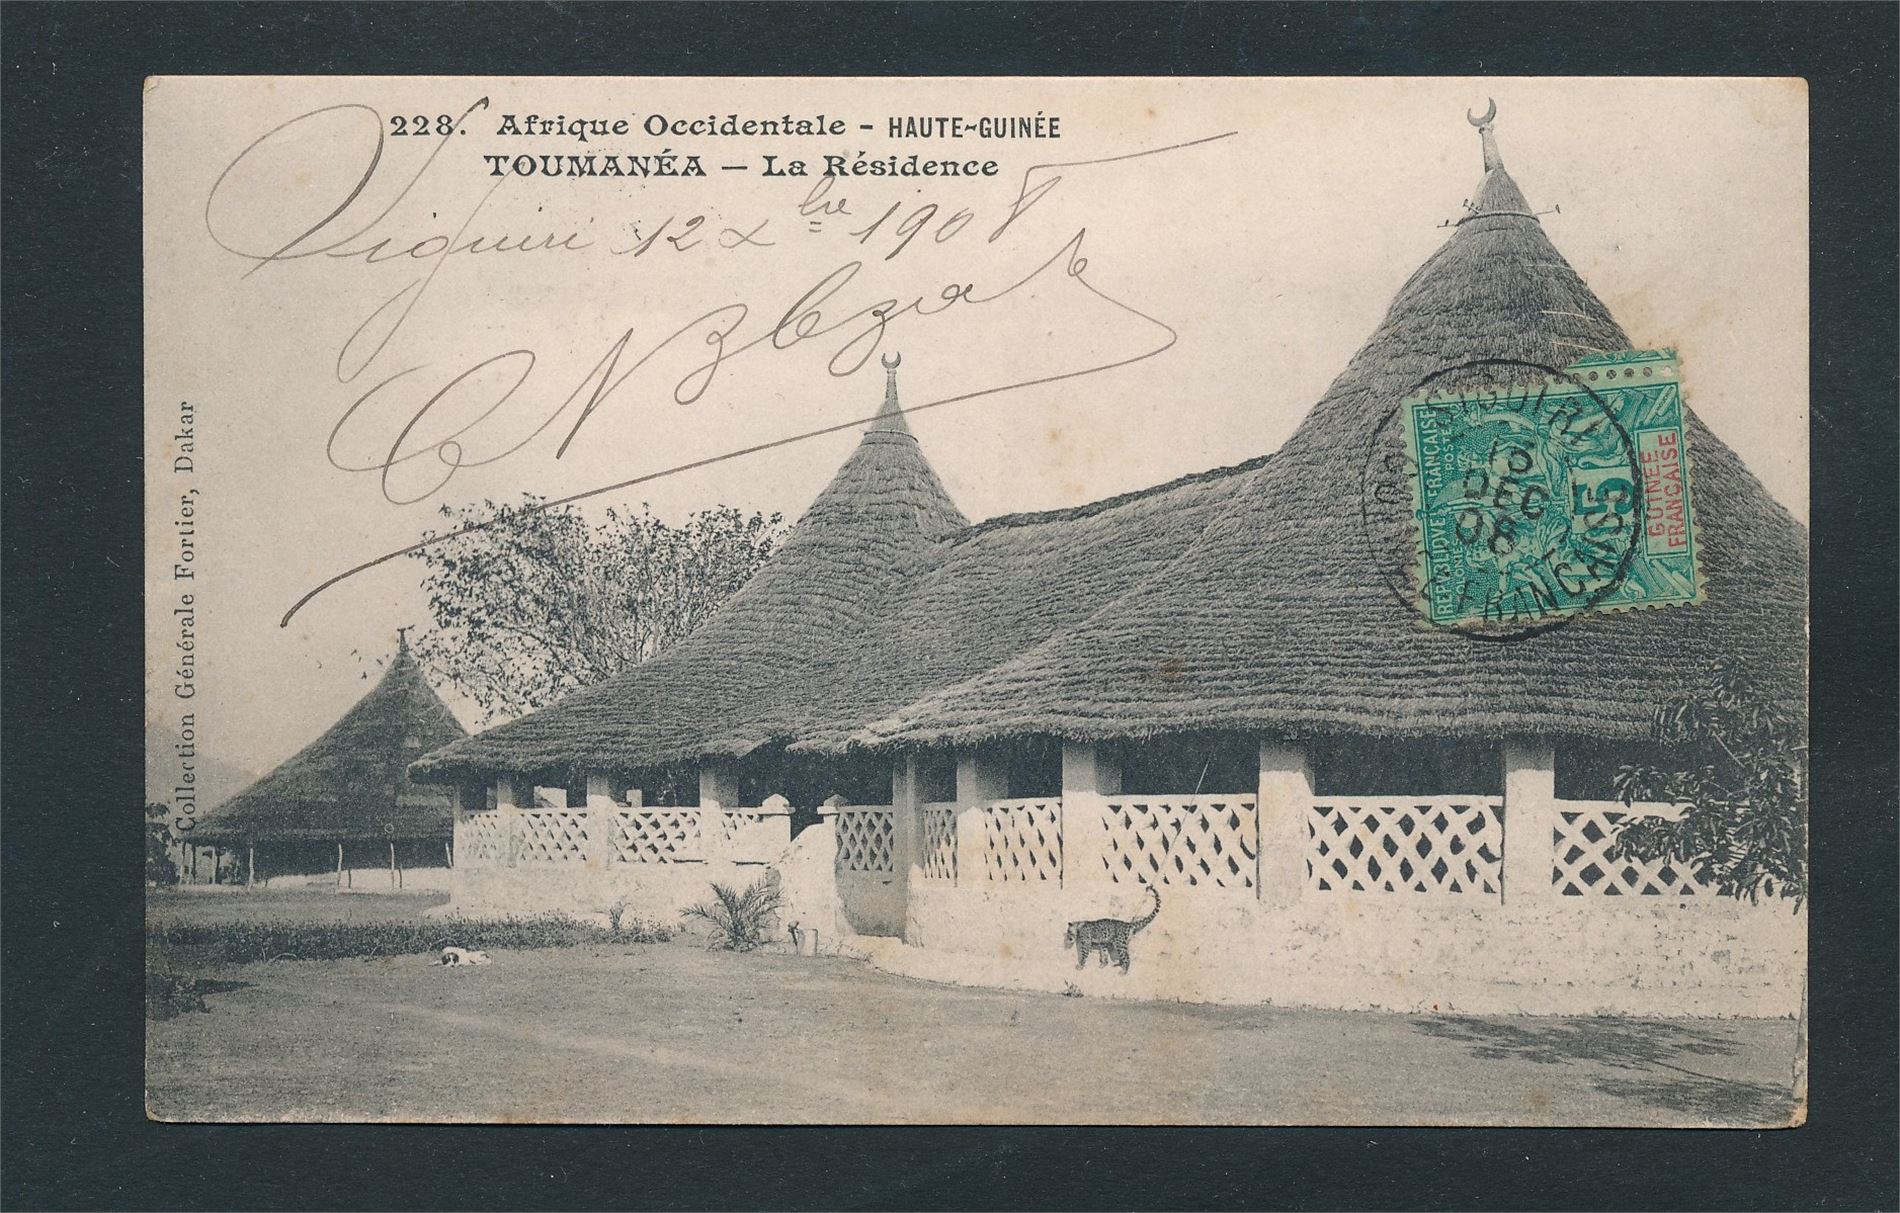 228. Afrique Occidentale - HAUTE-GUINÉE
TOUMANÉA — La Résidence
Siguiri 12 Xbre 1908
Collection Générale Fortier, Dakar
SIGUIRI
13
DEC
08
FRANÇAISE
REPUBLIQUE FRANÇAISE
COLONIES
POSTES
5
GUINÉE
FRANÇAISE